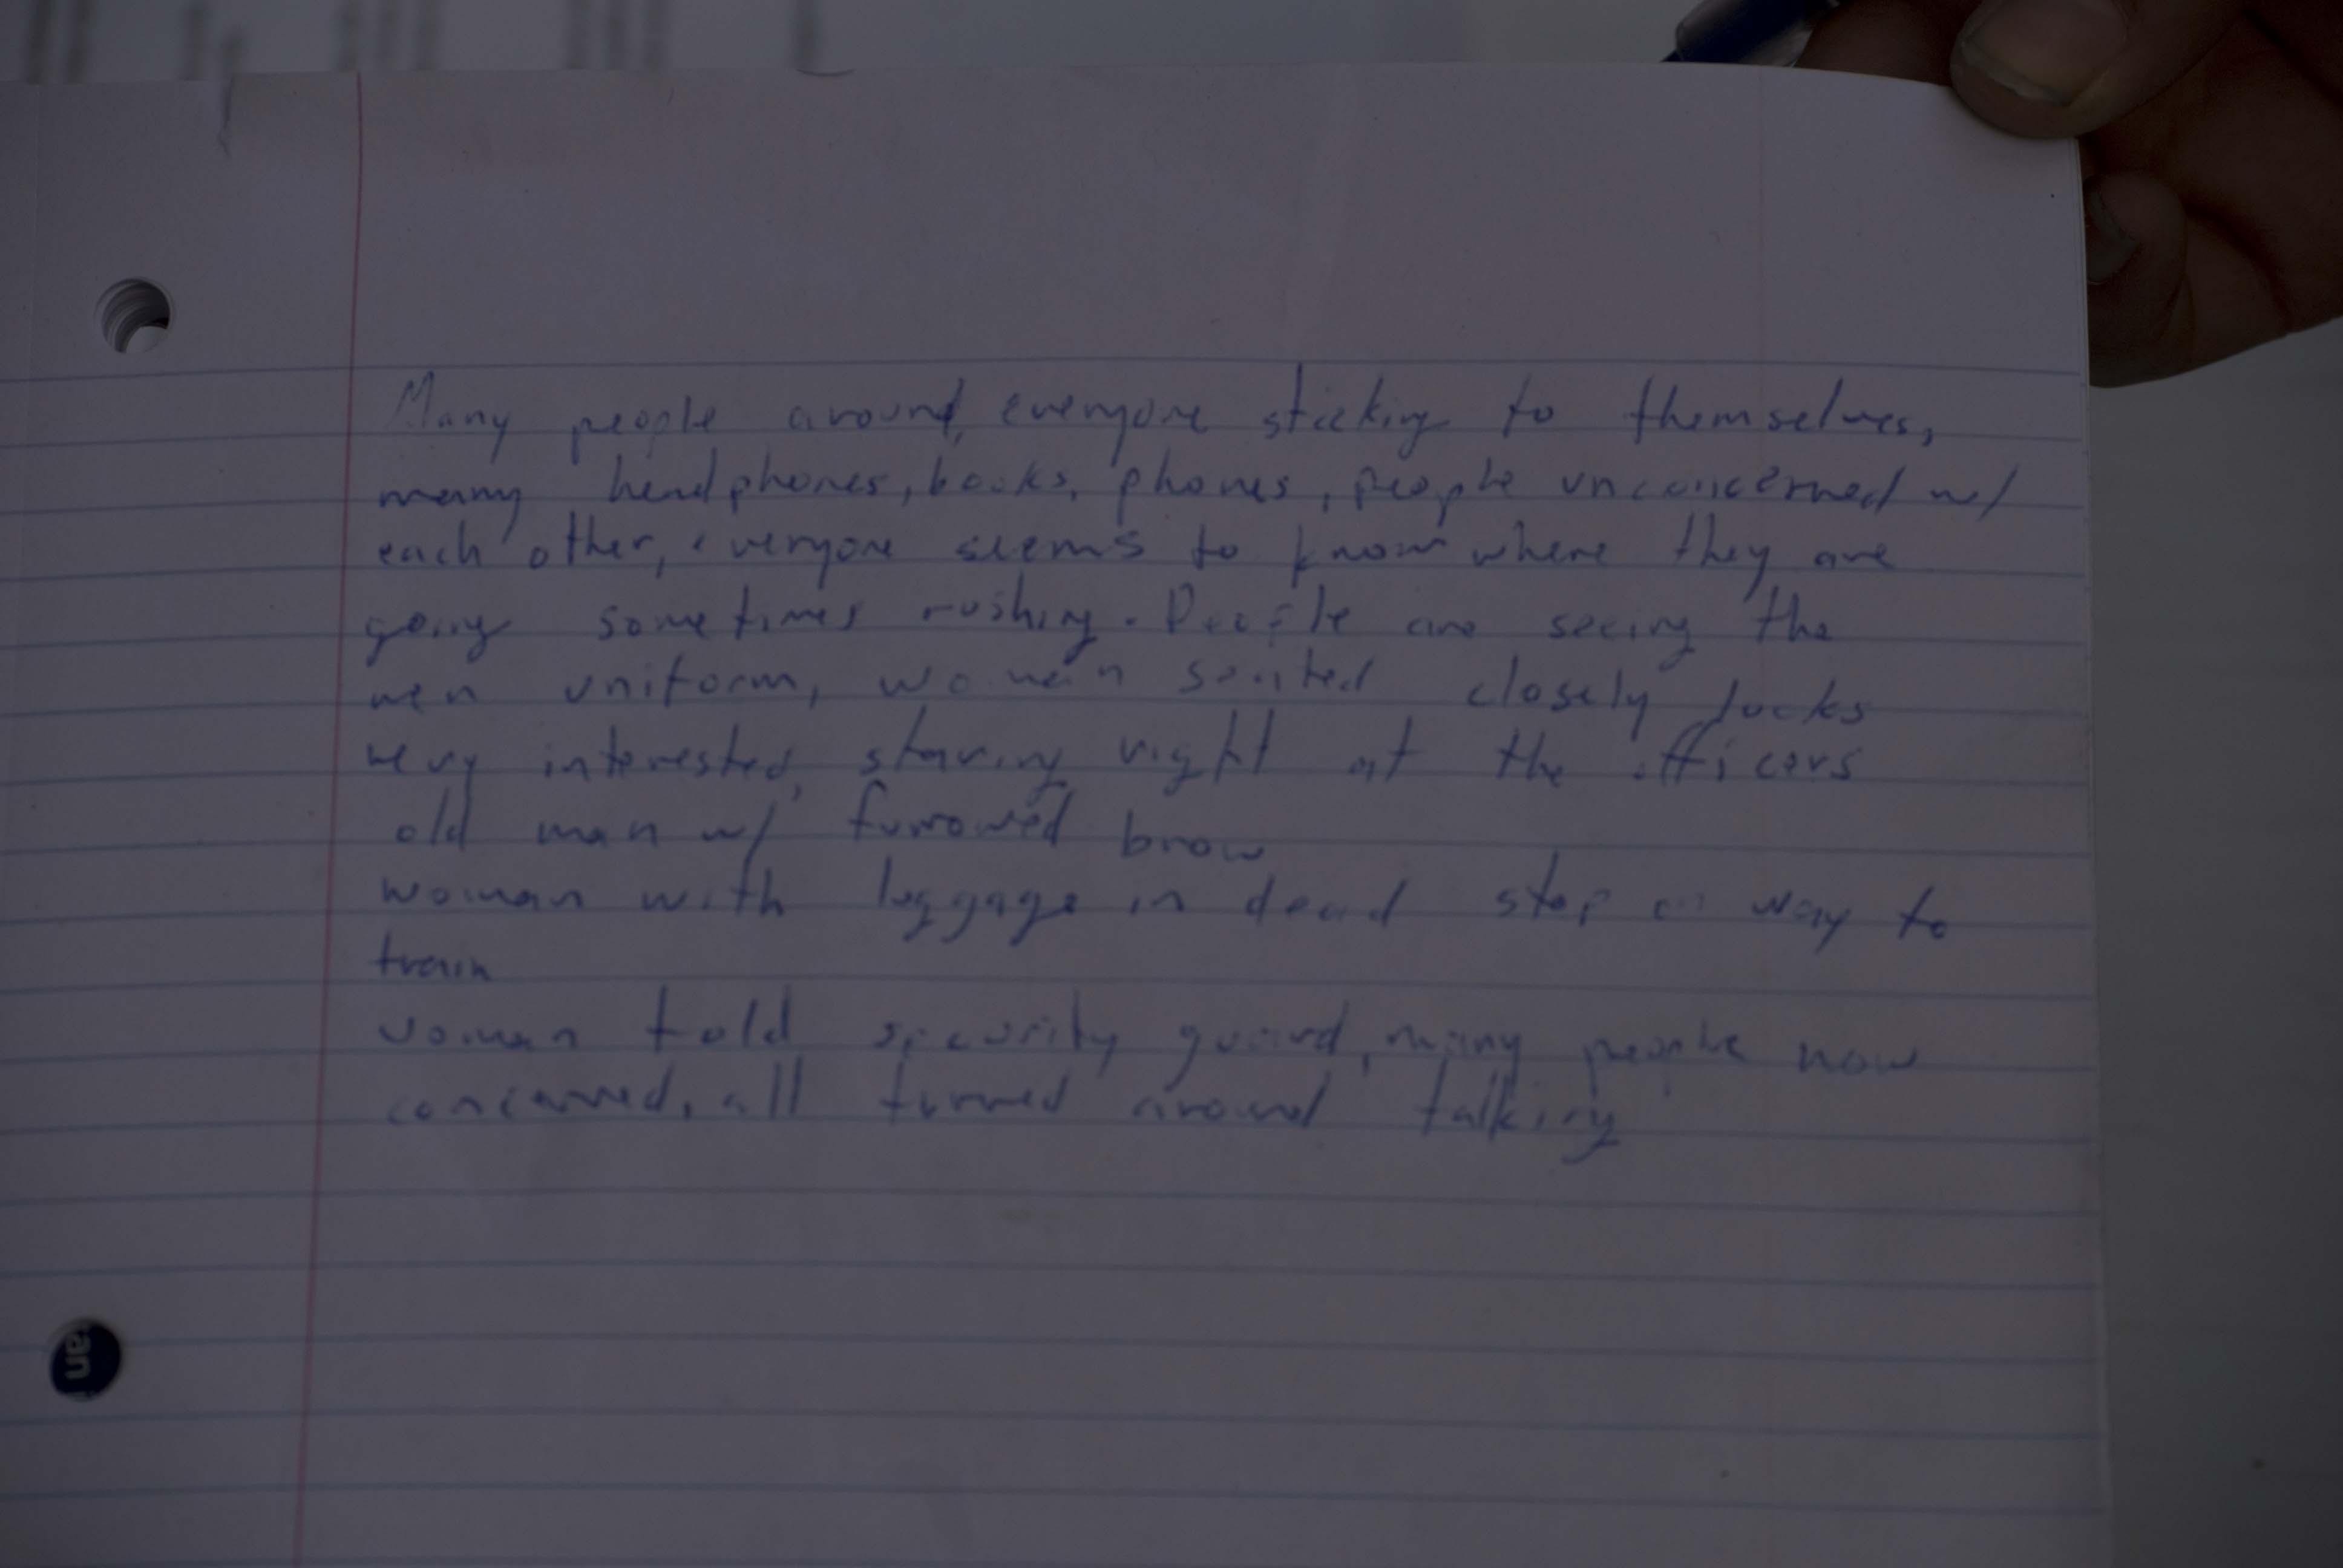 Many people around, everyone sticking to themselves,
many headphones, books, phones, people unconcerned w/
each other, everyone seems to know where they are
going sometimes rushing. People are seeing the
men uniform, woman seated closely looks
very interested, staring right at the officers
old man w/ furrowed brow
woman with luggage in dead stop on way to
train
woman told security guard, many people now
concerned, all turned around talking
an